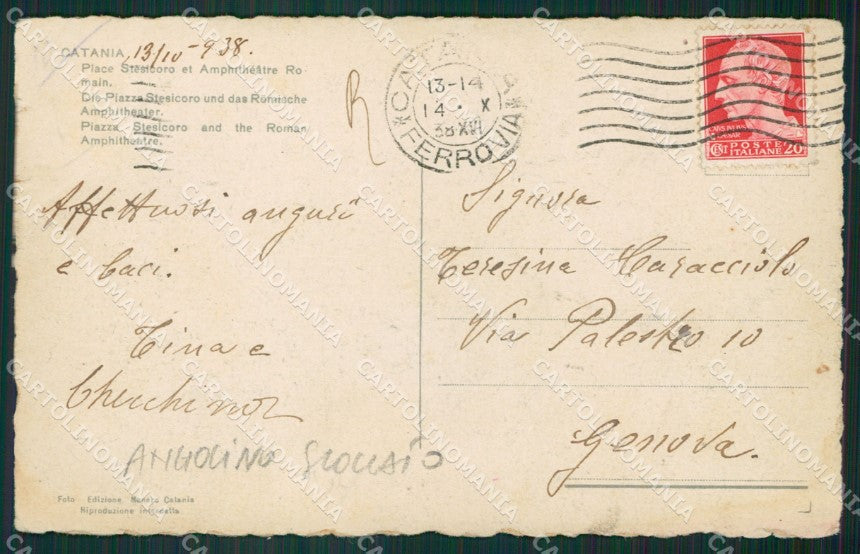 CATANIA, 13/10-938.
Place Stesicoro et Amphithéâtre Ro-
main.
Die Piazza Stesicoro und das Römische
Amphitheater.
Piazza Stesicoro and the Roman
Amphitheatre.
R
CATANIA
13-14
14 · X
38 XVI
*FERROVIA*
CENT POSTE
ITALIANE 20
Affettuosi auguri
e baci.
Tina e
Signora
Teresina Caracciolo
Via Palestro 10
Genova.
ANGOLINO
Foto Edizione Catania
Riproduzione interdetta
CARTOLINOMANIA